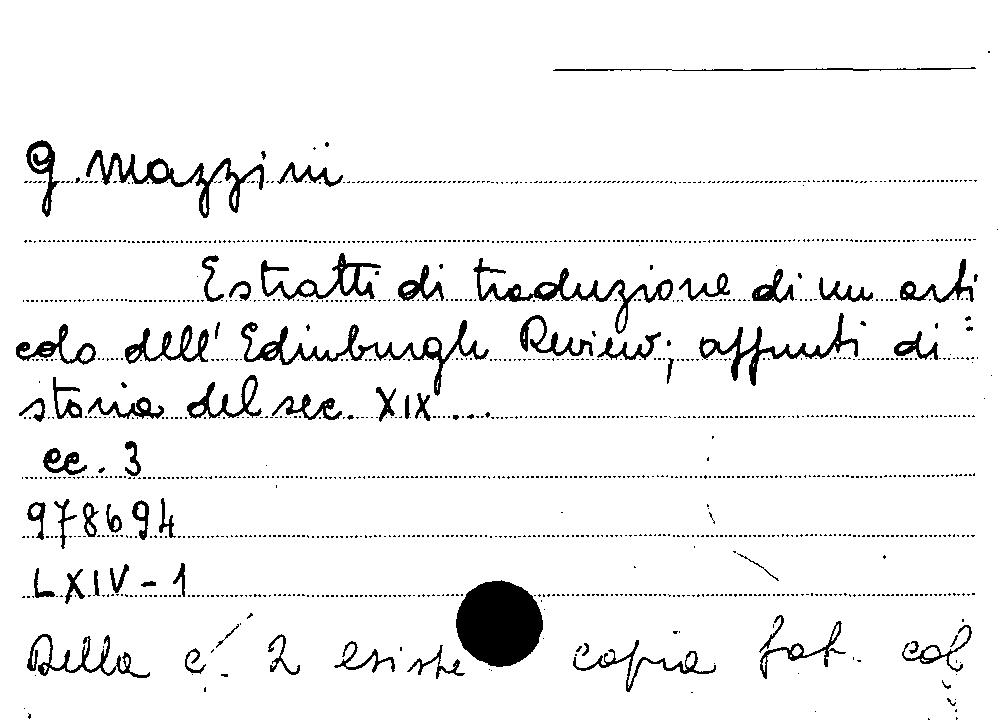 G. Mazzini
Estratti di traduzione di un arti
colo dell' Edinburgh Review; appunti di
storia del sec. XIX...
cc. 3
978694
LXIV-1
Della c. 2 esiste copia fot. col